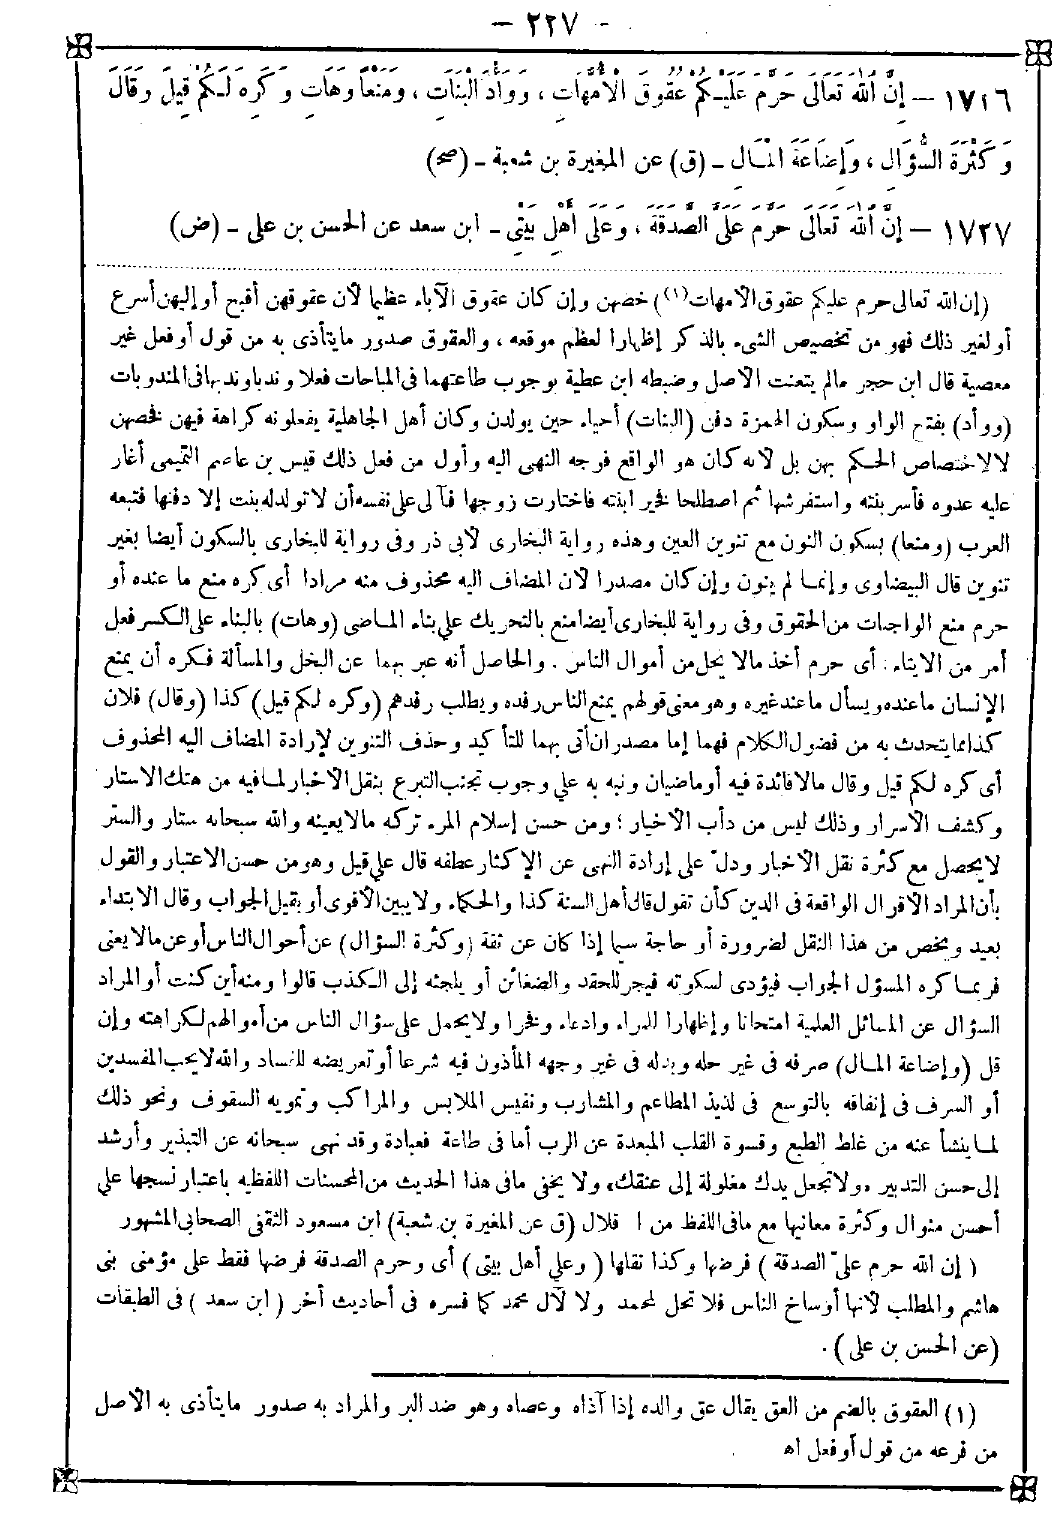 - ٢٢٧ -
١٧٢٦ - إِنَّ اللّٰهَ تَعَالَى حَرَّمَ عَلَيْكُمْ عُقُوقَ الْأُمَّهَاتِ ، وَوَأْدَ الْبَنَاتِ ، وَمَنْعًا وَهَاتِ وَكَرِهَ لَكُمْ قِيلَ وَقَالَ
وَكَثْرَةَ السُّؤَالِ ، وَإِضَاعَةَ الْمَالِ - (ق) عن المغيرة بن شعبة - (صح)
١٧٢٧ - إِنَّ اللّٰهَ تَعَالَى حَرَّمَ عَلَيَّ الصَّدَقَةَ ، وَعَلَى أَهْلِ بَيْتِي - ابن سعد عن الحسن بن على - (ض)
(إن الله تعالى حرم عليكم عقوق الأمهات(١)) خصهن وإن كان عقوق الآباء عظيما لأن عقوقهن أقبح أو إليهن أسرع
أو لغير ذلك فهو من تخصيص الشىء بالذكر إظهارا لعظم موقعه ، والعقوق صدور مايتأذى به من قول أو فعل غير
معصية قال ابن حجر مالم يتعنت الأصل وضبطه ابن عطية بوجوب طاعتهما فى المباحات فعلا وندباوندبها فى المندوبات
(ووأد) بفتح الواو وسكون الهمزة دفن (البنات) أحياء حين يولدن وكان أهل الجاهلية يفعلونه كراهة فيهن فخصهن
لالاختصاص الحكم بهن بل لأنه كان هو الواقع فوجه النهى اليه وأول من فعل ذلك قيس بن عاصم التميمى أغار
عليه عدوه فأسر بنته واستفرشها ثم اصطلحا فخير ابنته فاختارت زوجها فآلى على نفسه أن لاتولدله بنت إلا دفنها فتبعه
العرب (ومنعا) بسكون النون مع تنوين العين وهذه رواية البخارى لأبى ذر وفى رواية للبخارى بالسكون أيضا بغير
تنوين قال البيضاوى وإنما لم ينون وإن كان مصدرا لأن المضاف اليه محذوف منه مرادا أى كره منع ما عنده أو
حرم منع الواجبات من الحقوق وفى رواية للبخارى أيضا منع بالتحريك على بناء الماضى (وهات) بالبناء على الكسر فعل
أمر من الايتاء : أى حرم أخذ مالا يحل من أموال الناس . والحاصل أنه عبر بهما عن البخل والمسألة فكره أن يمنع
الإنسان ماعنده ويسأل ماعند غيره وهو معنى قولهم يمنع الناس رفده ويطلب رفدهم (وكره لكم قيل) كذا (وقال) فلان
كذا مما يتحدث به من فضول الكلام فهما إما مصدران أتى بهما للتأكيد وحذف التنوين لإرادة المضاف اليه المحذوف
أى كره لكم قيل وقال مالا فائدة فيه أو ماضيان ونبه به على وجوب تجنب التبرع بنقل الأخبار لما فيه من هتك الاستار
وكشف الأسرار وذلك ليس من دأب الأخيار ؛ ومن حسن إسلام المرء تركه مالا يعينه والله سبحانه ستار والستر
لايحصل مع كثرة نقل الأخبار ودلّ على إرادة النهى عن الإكثار عطفه قال على قيل وهو من حسن الاعتبار والقول
بأن المراد الأقوال الواقعة فى الدين كأن تقول قال أهل السنة كذا والحكماء ولا يبين الأقوى أو بقيل الجواب وقال الابتداء
بعيد ويخص من هذا النقل لضرورة أو حاجة سيما إذا كان عن ثقة (وكثرة السؤال) عن أحوال الناس أو عن مالا يعنى
فربما كره المسؤل الجواب فيؤدى لسكوته فيجر للحقد والضغائن أو يلجئه إلى الكذب قالوا ومنه أين كنت أو المراد
السؤال عن المسائل العلمية امتحانا وإظهارا للمراء وادعاء وفخرا ولا يحمل على سؤال الناس من أموالهم لكراهته وإن
قل (وإضاعة المال) صرفه فى غير حله وبذله فى غير وجهه المأذون فيه شرعا أو تعريضه للفساد والله لا يحب المفسدين
أو السرف فى إنفاقه بالتوسع فى لذيذ المطاعم والمشارب ونفيس الملابس والمراكب وتمويه السقوف ونحو ذلك
لما ينشأ عنه من غلظ الطبع وقسوة القلب المبعدة عن الرب أما فى طاعة فعبادة وقد نهى سبحانه عن التبذير وأرشد
إلى حسن التدبير «ولا تجعل يدك مغلولة إلى عنقك» ولا يخفى مافى هذا الحديث من المحسنات اللفظيه باعتبار نسجها على
أحسن منوال وكثرة معانيها مع مافى اللفظ من ا قلال (ق عن المغيرة بن شعبة) ابن مسعود الثقفى الصحابى المشهور
( إن الله حرم علىّ الصدقة ) فرضها وكذا نفلها ( وعلى أهل بيتى ) أى وحرم الصدقة فرضها فقط على مؤمنى بنى
هاشم والمطلب لأنها أوساخ الناس فلا تحل لمحمد ولا لآل محمد كما فسره فى أحاديث أخر ( ابن سعد ) فى الطبقات
(عن الحسن بن على) .
(١) العقوق بالضم من العق يقال عق والده إذا آذاه وعصاه وهو ضد البر والمراد به صدور مايتأذى به الأصل
من فرعه من قول أو فعل اه